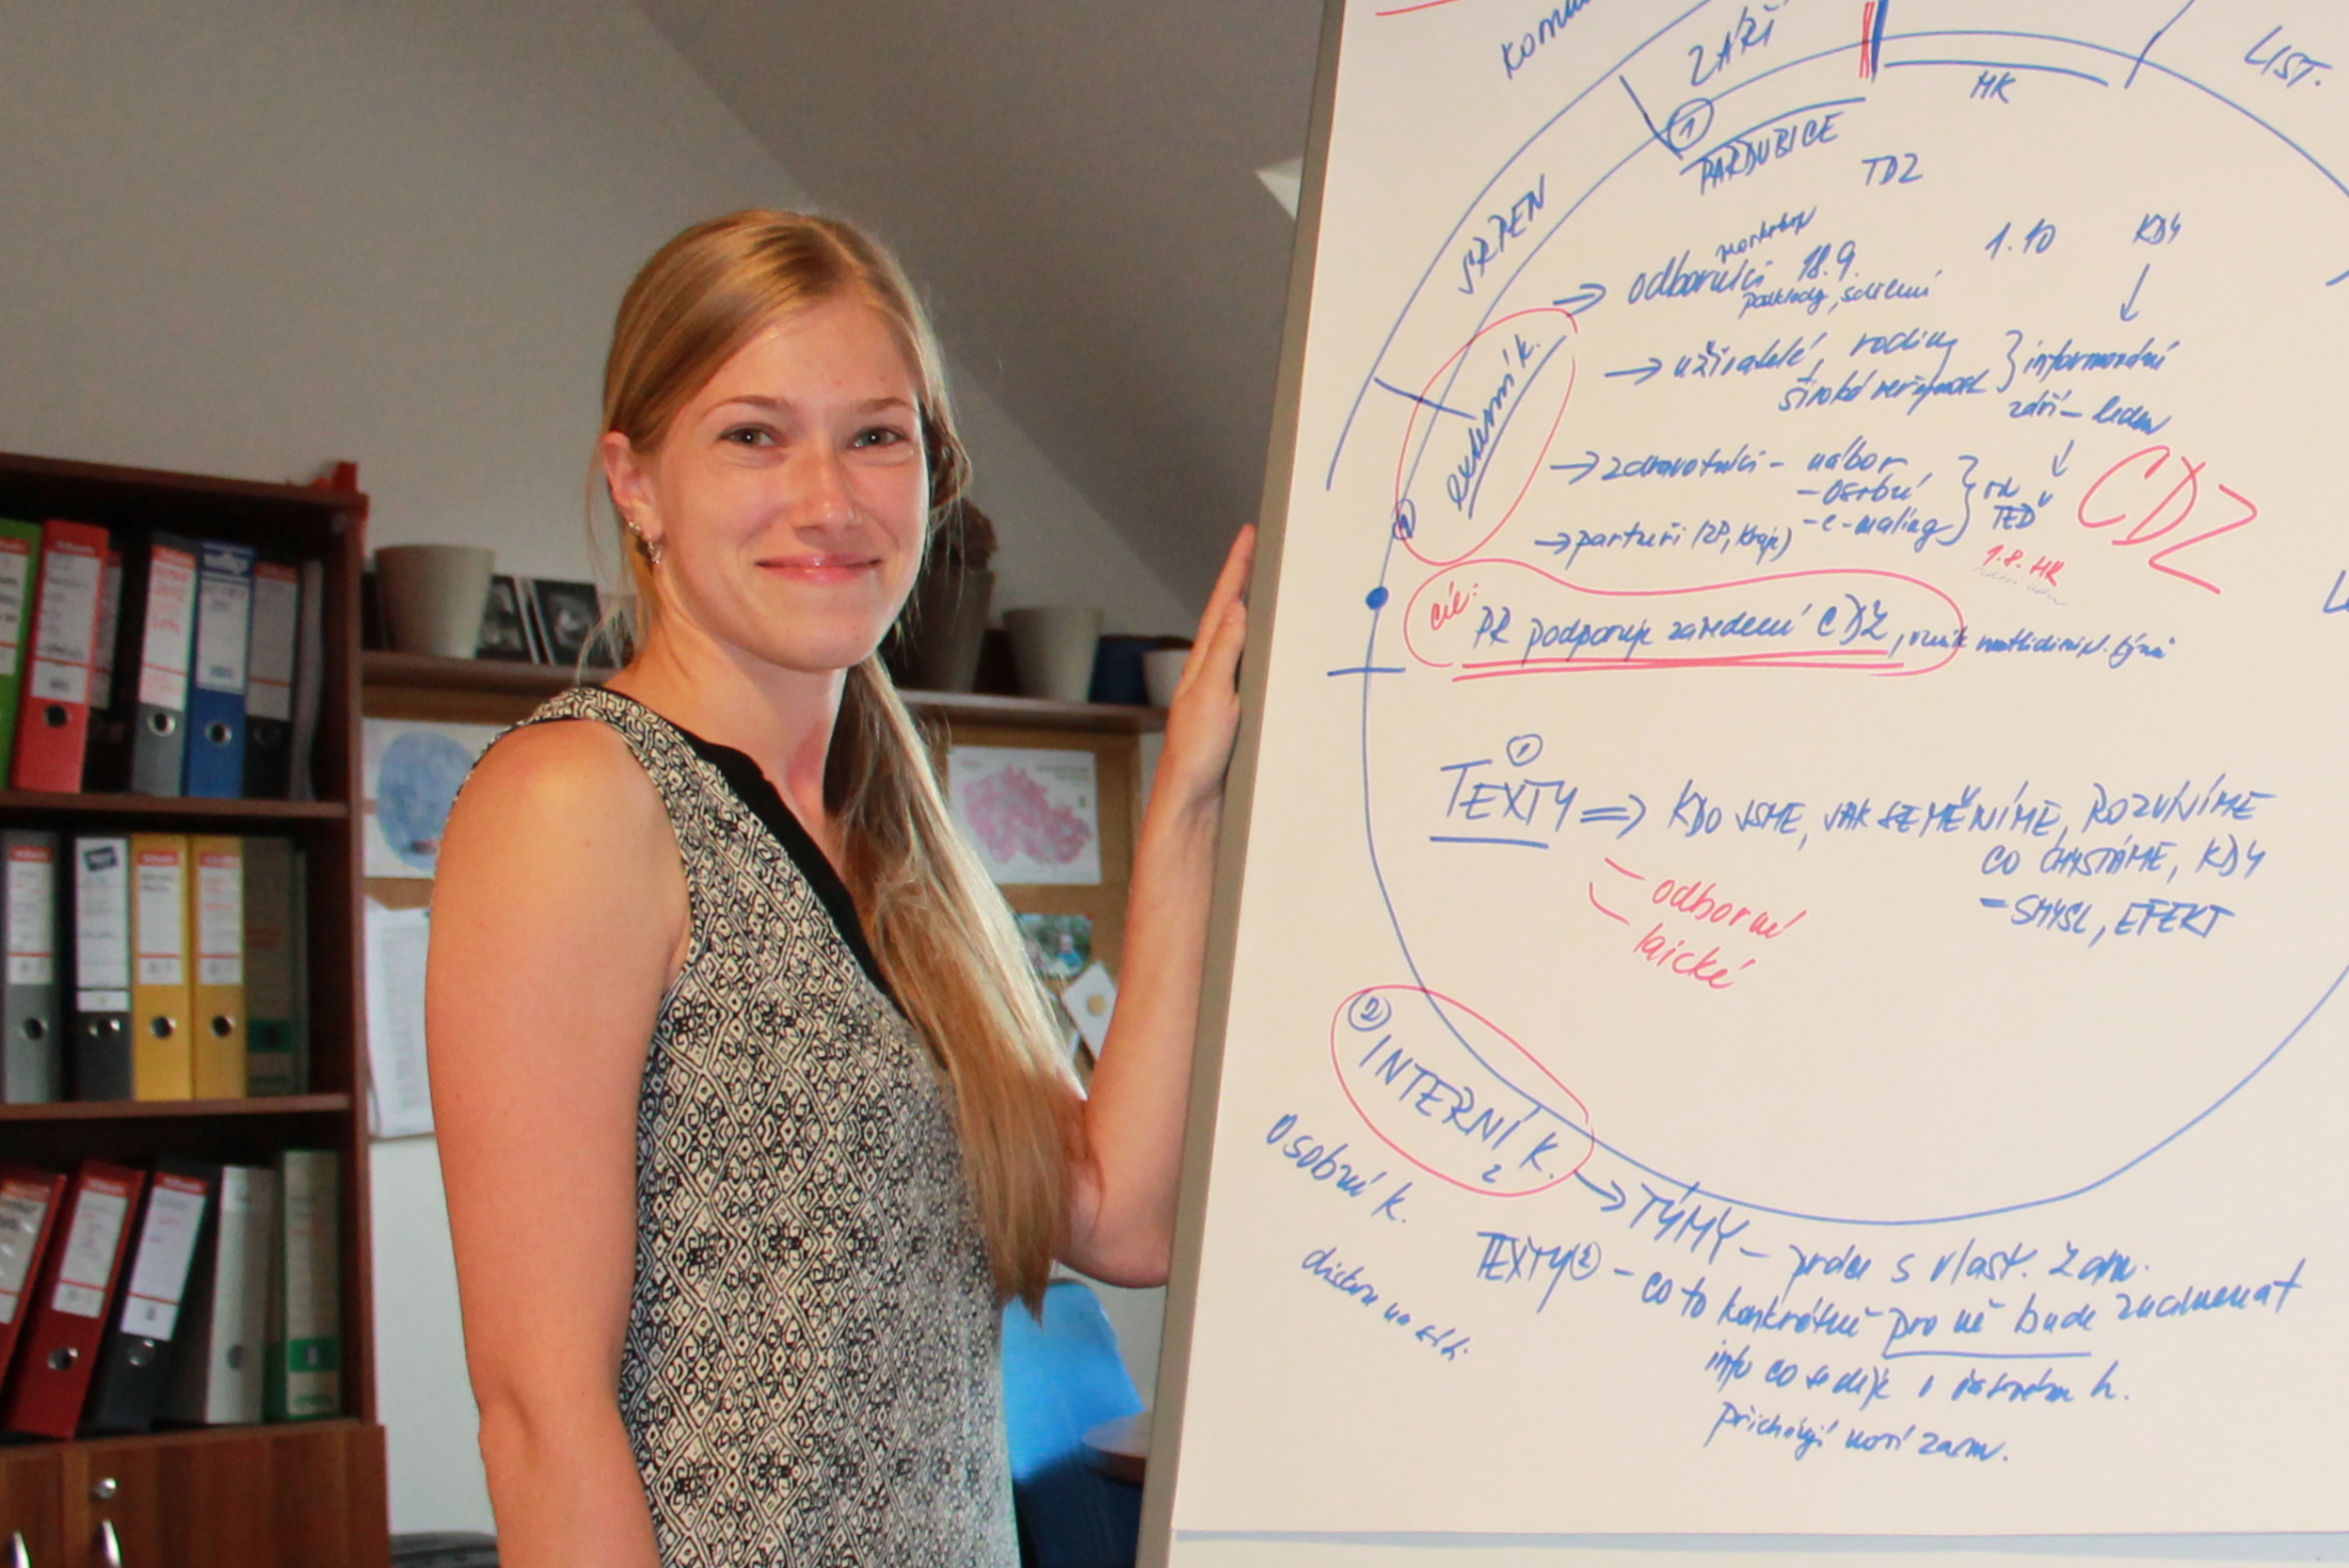 ZÁŘÍ
HK
LIST.
①
PARDUBICE
TDZ
SRPEN
workshop
odborníci 18.9.
podklady, sdílení
1.10
KDY
externí k.
→ uživatelé, rodiny
široká veřejnost
informování
září – leden
→ zdravotníci – nábor
– osobní
– e-mailing
TEĎ
→ partneři (ZP, Kraje)
CDZ
1.8. HK
cíl:
PR podporuje zavedení CDZ, vznik multidiscipl. týmů
①
TEXTY ⇒ KDO JSME, JAK SE MĚNÍME, ROZVÍJÍME
CO CHYSTÁME, KDY
– SMYSL, EFEKT
– odborné
laické
②
INTERNÍ K.
2
osobní k.
→ TÝMY – práce s vlast. zam.
TEXTY② – co to konkrétně pro ně bude znamenat
info co se děje
přicházejí noví zam.